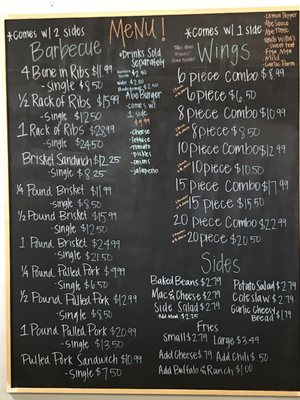 MENU!
*COMES W/ 2 SIDES
Barbecue
4 Bone in Ribs $11.99
-single $8.50
1/2 Rack of Ribs $15.99
-single $12.50
1 Rack of Ribs $28.99
-single $24.50
Brisket Sandwich $12.25
-single $8.25
1/4 Pound Brisket $11.99
-single $8.50
1/2 Pound Brisket $15.99
-single $12.50
1 Pound Brisket $24.99
-single $21.50
1/4 Pound Pulled Pork $9.99
-single $6.50
1/2 Pound Pulled Pork $12.99
-single $8.50
1 Pound Pulled Pork $20.99
-single $13.50
Pulled Pork Sandwich $10.99
-single $7.50
*Drinks Sold
Separately
Abe Burger
-comes w/
1 side
$9.99
-cheese
-lettuce
-tomato
-pickles
-onions
-jalapeño
*COMES W/ 1 SIDE
Wings
6 piece Combo $8.99
6 piece $6.50
8 piece Combo $10.99
8 piece $8.50
10 piece Combo $12.99
10 piece $10.50
15 piece Combo $17.99
15 piece $15.50
20 piece Combo $22.99
20 piece $20.50
Lemon Pepper
Abe Sauce
Abe Tonic
Uncle Willie's
Sweet Heat
Mild
Garlic Parm
Sides
Baked Beans $2.79
Mac & Cheese $2.79
Side Salad $2.79
Add Meat $2.25
Potato Salad $2.79
Coleslaw $2.79
Garlic Cheesy
Bread $1.79
Fries
Small $2.79 Large $3.49
Add Cheese $.79 Add Chili $.50
Add Buffalo & Ranch $1.00